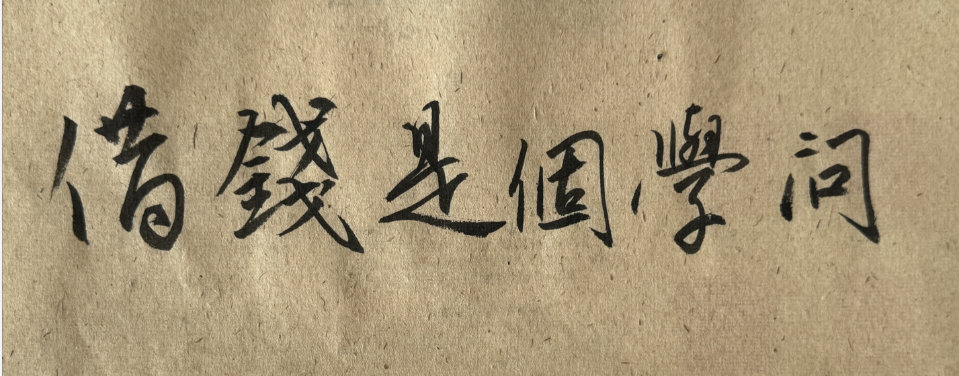 借錢是個學问